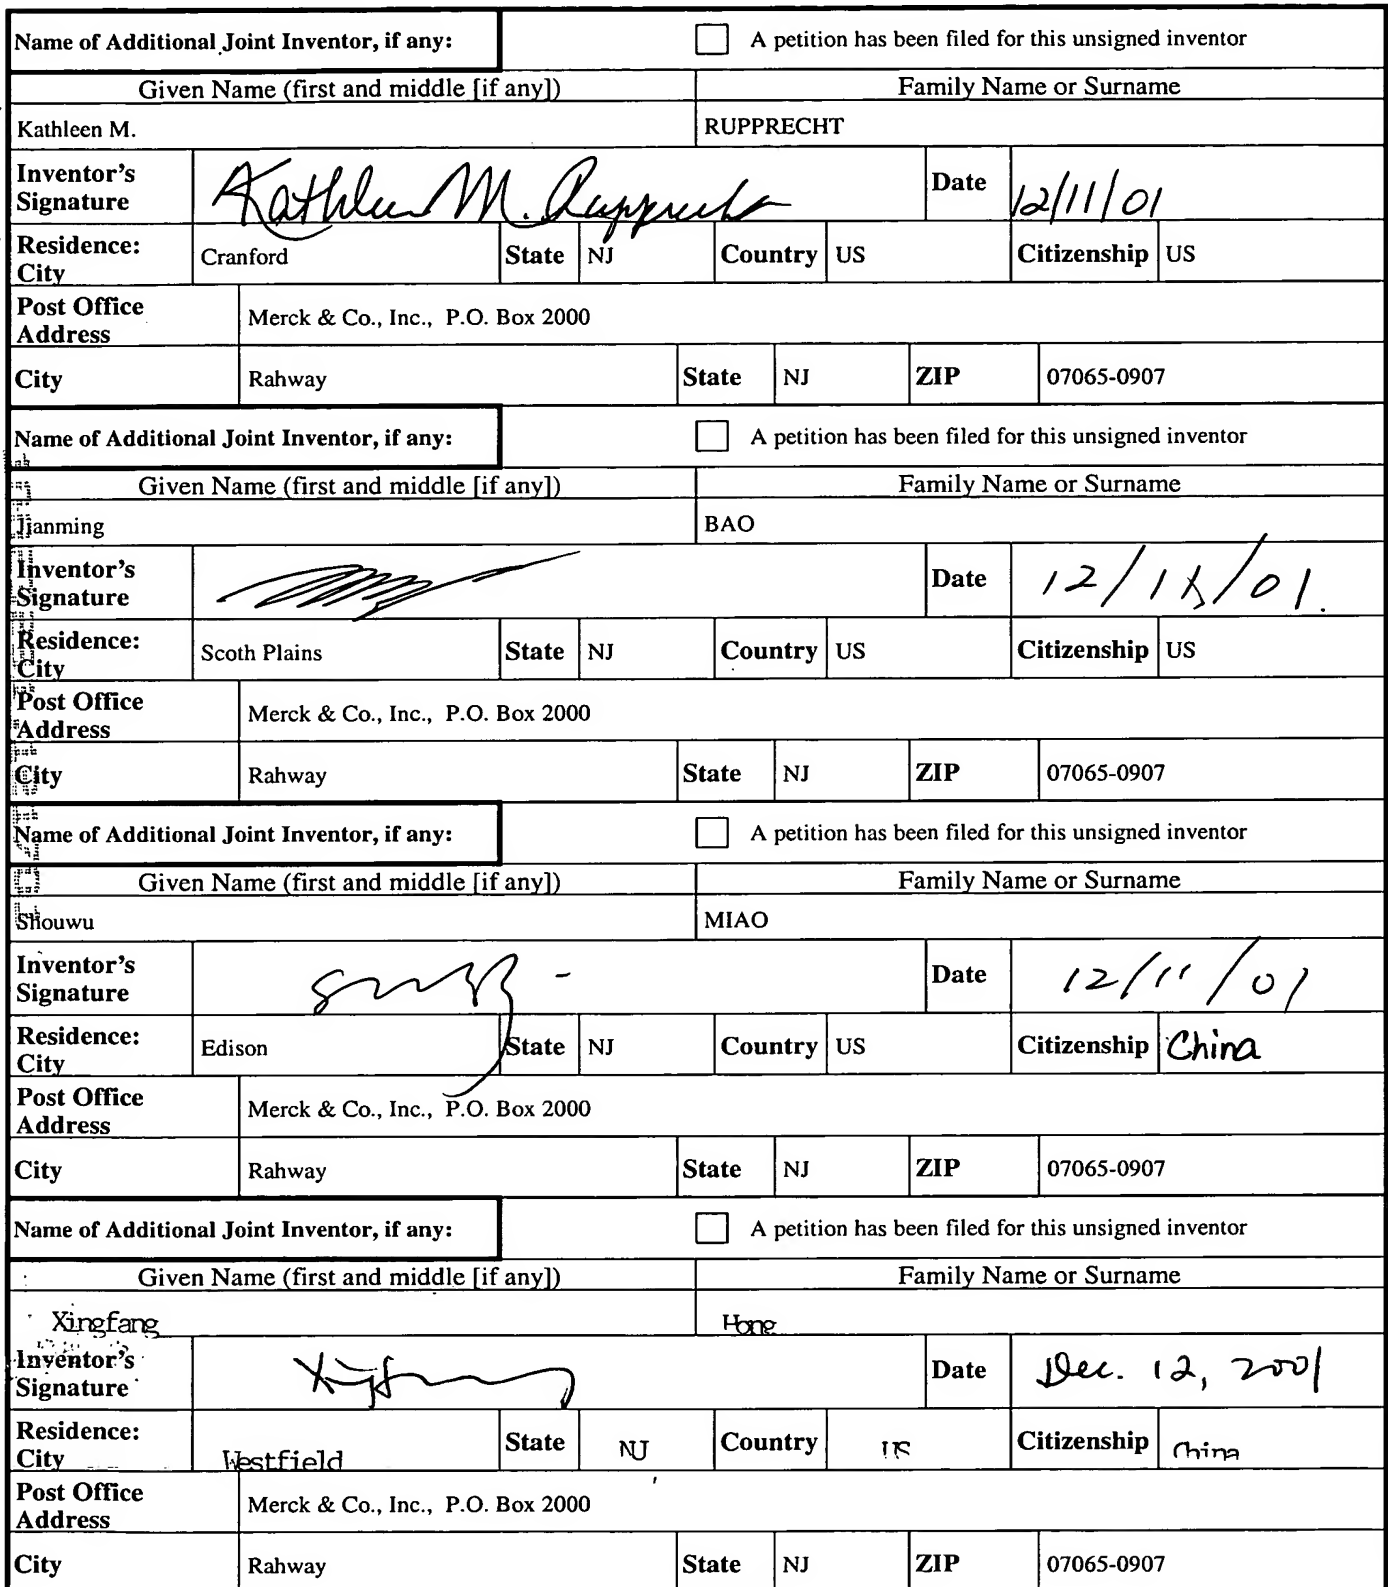 Name of Additional Joint Inventor, if any: A petition has been filed for this unsigned inventor
Given Name (first and middle [if any]) Family Name or Surname
Kathleen M. RUPPRECHT
Inventor's Signature Kathleen M. Rupprecht Date 12/11/01
Residence: City Cranford State NJ Country US Citizenship US
Post Office Address Merck & Co., Inc., P.O. Box 2000
City Rahway State NJ ZIP 07065-0907
Name of Additional Joint Inventor, if any: A petition has been filed for this unsigned inventor
Given Name (first and middle [if any]) Family Name or Surname
Jianming BAO
Inventor's Signature Date
Residence: City Scoth Plains State NJ Country US Citizenship US
Post Office Address Merck & Co., Inc., P.O. Box 2000
City Rahway State NJ ZIP 07065-0907
Name of Additional Joint Inventor, if any: A petition has been filed for this unsigned inventor
Given Name (first and middle [if any]) Family Name or Surname
Shouwu MIAO
Inventor's Signature Date 12/11/01
Residence: City Edison State NJ Country US Citizenship China
Post Office Address Merck & Co., Inc., P.O. Box 2000
City Rahway State NJ ZIP 07065-0907
Name of Additional Joint Inventor, if any: A petition has been filed for this unsigned inventor
Given Name (first and middle [if any]) Family Name or Surname
Xingfang Hong
Inventor's Signature Date Dec. 12, 2001
Residence: City Westfield State NJ Country US Citizenship China
Post Office Address Merck & Co., Inc., P.O. Box 2000
City Rahway State NJ ZIP 07065-0907